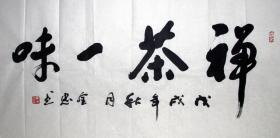 禅茶一味
戊戌年秋月金忠书